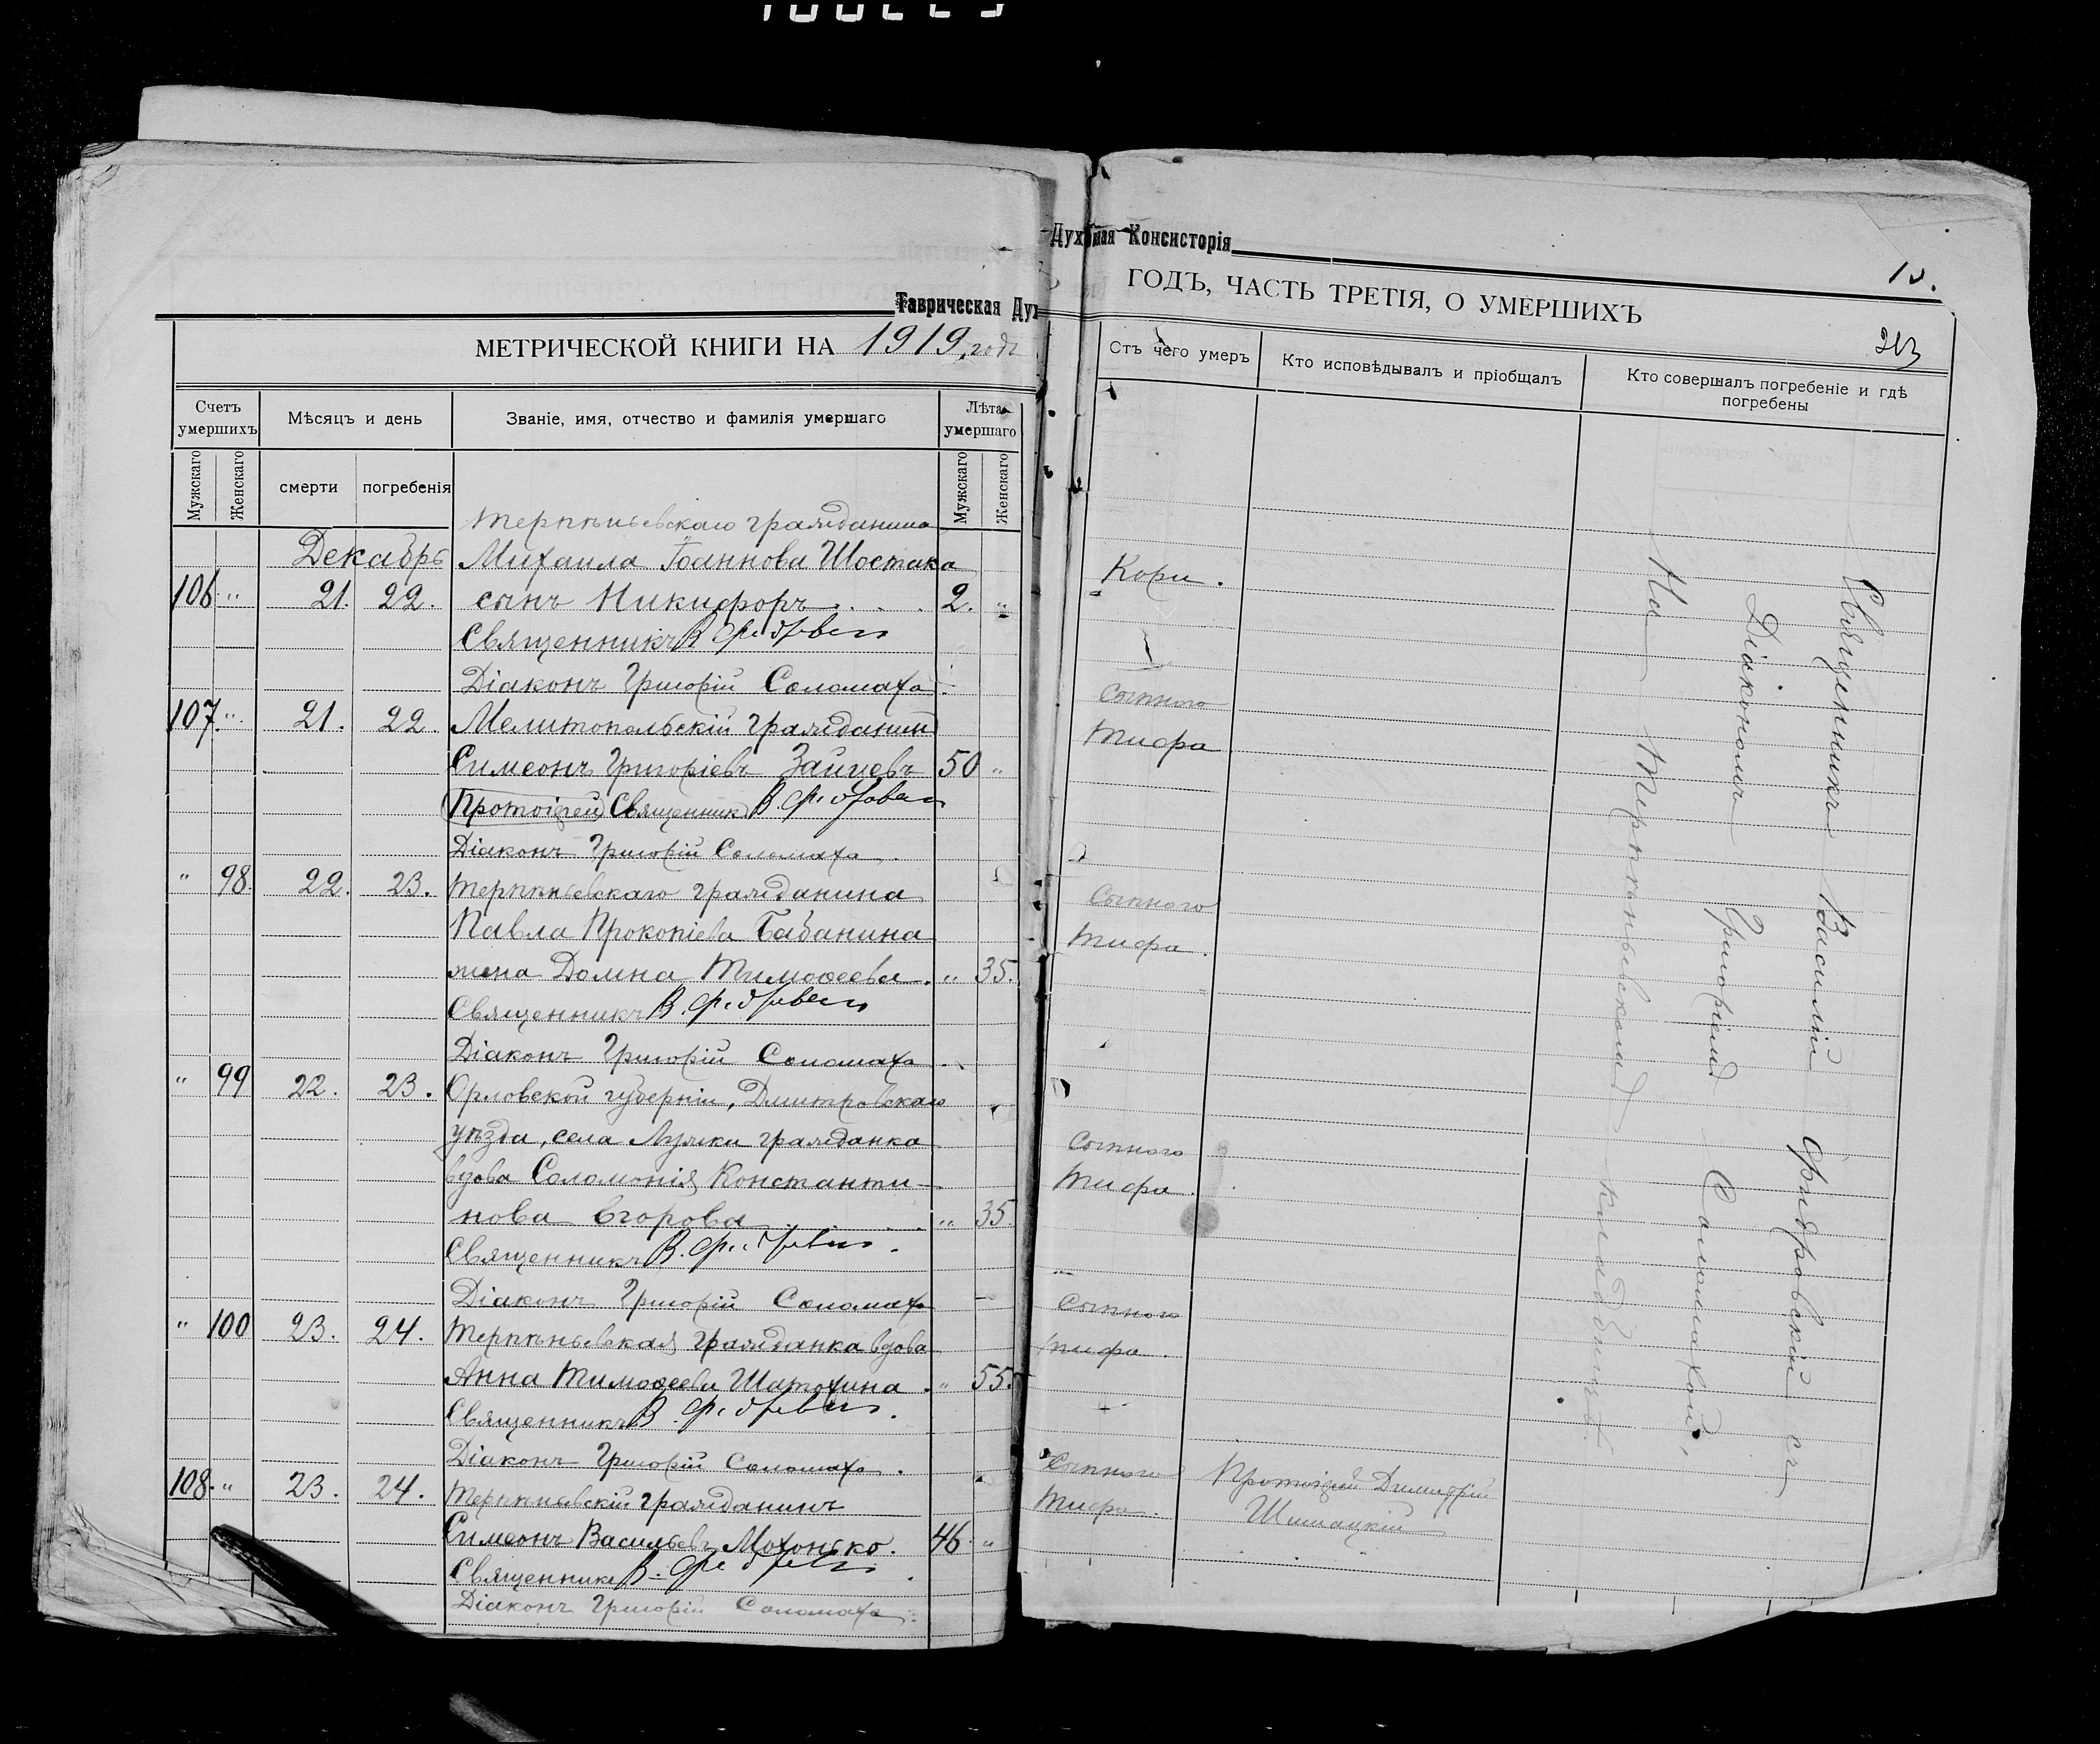 Таврическая Духовная Консисторія
МЕТРИЧЕСКОЙ КНИГИ НА 1919 годъ
Счетъ умершихъ
Мѣсяцъ и день
Званіе, имя, отчество и фамилія умершаго
Лѣта умершаго
Мужскаго
Женскаго
смерти
погребенія
Мужскаго
Женскаго
Терпѣньевскаго гражданина
Декабрь Михаила Іоаннова Шостака
106 " 21. 22. сынъ Никифоръ . . . 2. "
Священникъ В. Фе
Діаконъ Григорій Соломаха.
107. " 21. 22. Мелитопольскій гражданинъ
Симеонъ Григоріевъ Зайцевъ 50 "
(Протоіерей) Священникъ В. Фе
Діаконъ Григорій Соломаха.
" 98. 22. 23. Терпѣньевскаго гражданина
Павла Прокопіева Бабанина
жена Домна Тимоѳеева . " 35.
Священникъ В. Фе
Діаконъ Григорій Соломаха.
" 99 22. 23. Орловской губерніи, Дмитровскаго
уѣзда, села Лужки гражданка
вдова Соломонія Константи-
нова Егорова . . . . " 35.
Священникъ В. Фе
Діаконъ Григорій Соломаха
" 100 23. 24. Терпѣньевская гражданка вдова
Анна Тимоѳеева Шатохина . " 55.
Священникъ В. Фе
Діаконъ Григорій Соломаха.
108. " 23. 24. Терпѣньевскій гражданинъ
Симеонъ Васильевъ Мохонько. 46 "
Священникъ В. Фе
Діаконъ Григорій Соломаха.
Духовная Консисторія
ГОДЪ, ЧАСТЬ ТРЕТІЯ, О УМЕРШИХЪ
Отъ чего умеръ
Кто исповѣдывалъ и пріобщалъ
Кто совершалъ погребеніе и гдѣ погребены
Кори.
Сыпного
тифа
Сыпного
тифа.
Сыпного
тифа.
Сыпного
тифа.
Сыпного
тифа.
Протоіерей Димитрій
Шишацкій
Священникъ Василій Фидровскій съ
Діакономъ Григоріемъ Саломахой,
На Терпѣньевскомъ кладбищѣ